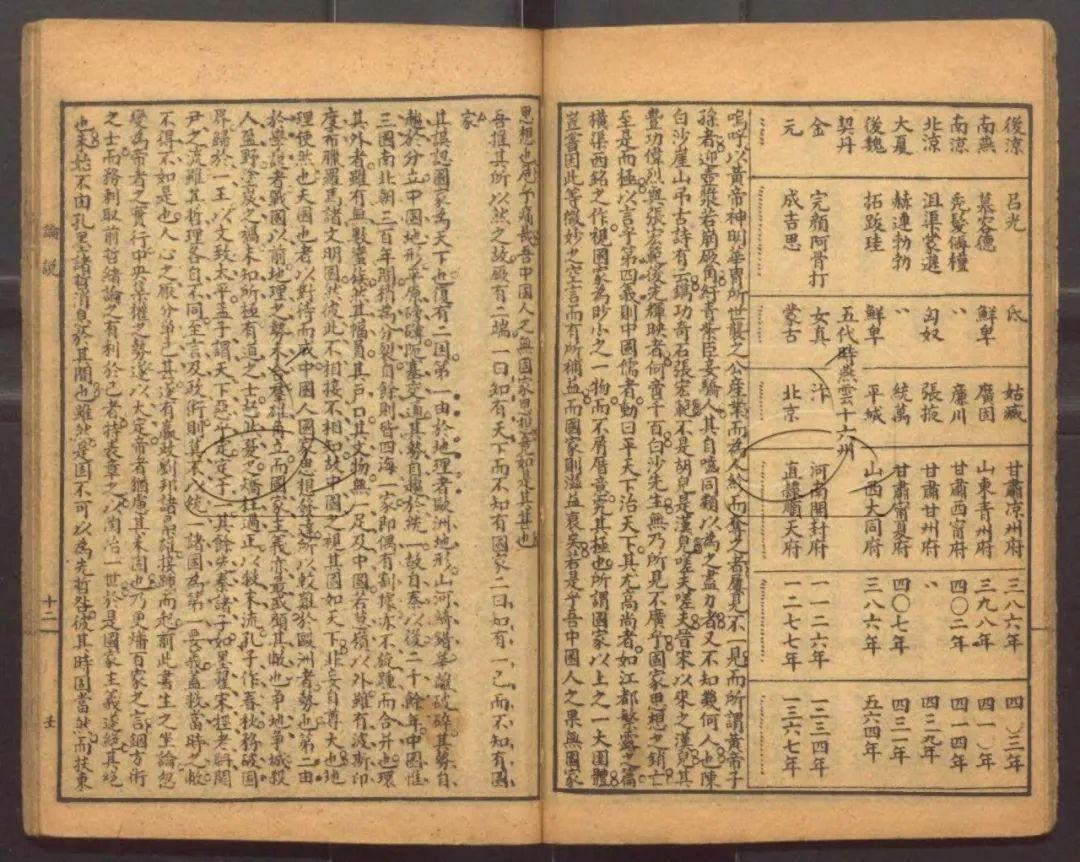 後涼 呂光 氐 姑臧 甘肅涼州府 三八六年 四〇三年
南燕 慕容德 鮮卑 廣固 山東青州府 三九八年 四一〇年
南涼 禿髮傉檀 〃 廉川 甘肅西甯府 四〇二年 四一四年
北涼 沮渠蒙遜 匈奴 張掖 甘肅甘州府 〃 四三九年
大夏 赫連勃勃 〃 統萬 甘肅甯夏府 四〇七年 四三一年
後魏 拓跋珪 鮮卑 平城 山西大同府 三八六年 五六四年
契丹 五代時燕雲十六州
金 完顏阿骨打 女真 汴 河南開封府 一一二六年 一二三四年
元 成吉思 蒙古 北京 直隸順天府 一二七七年 一三六七年
嗚呼以黃帝神明華冑所世襲之公產業而為人紾而奪之者屢見不一見而所謂黃帝子
孫者迎壺漿若崩厥角紆青紫臣妾驕人其自噬同類以為之盡力者又不知幾何人也陳
白沙崖山吊古詩有云鐫功奇石張宏範不是胡兒是漢兒嗟夫嗟夫晉宋以來之漢兒其
豐功偉烈與張宏範後先輝映者何啻千百白沙先生無乃所見不廣乎國家思想之銷亡
至是而極以言乎第四義則中國儒者動曰平天下治天下其尤高尚者如江都繁露之篇
橫渠西銘之作視國家為眇小之一物而不屑厝意究其極也所謂國家以上之一大團體
豈嘗因此等微妙之空言而有所補益而國家則滋益衰矣若是乎吾中國人之果無國家
思想也危乎痛哉吾中國人之無國家思想竟如是其甚也
吾推其所以然之故厥有二端一曰知有天下而不知有國家二曰知有一己而不知有國
家
其誤認國家為天下也復有二因第一由於地理者歐洲地形山河綺錯華離破碎其勢自
趨於分立中國地形平原磅礴阨塞交通其勢自趨於統一故自秦以後二千餘年中間惟
三國南北朝三百年間稍為分裂自餘則皆四海一家即偶有割據亦不旋踵而合并也環
其外者雖有無數蠻族然其幅員其戶口其文物無一足及中國若葱嶺以外雖有波斯印
度希臘羅馬諸文明國然彼此不相接不相知故中國之視其國如天下非妄自尊大也地
理使然也夫國也者以對待而成中國人國家思想發達所以較難於歐洲者勢也第二由
於學說者戰國以前地理之勢未合羣雄角立而國家主義亦最盛顧其敝也爭地爭城殺
人盈野塗炭之禍未知所極有道之士惄焉憂之矯枉過正以救末流孔子作春秋務破國
界歸於一王以文致太平孟子謂天下惡乎定定于一其餘先秦諸子如墨翟宋牼老耼關
尹之流雖其哲理各自不同至言及政術則莫不以統一諸國為第一要義蓋救當時之敝
不得不如是也人心之厭分爭已甚遂有嬴政劉邦諸梟雄接踵而起前此書生之坐論忽
變為帝者之實行中央集權之勢遂以大定帝者猶慮其未固也乃更燔百家之言錮方術
之士而務刺取前哲緒論之有利於己者特表章之以陶冶一世於是國家主義遂絕其絕
也未始不由孔墨諸哲消息於其間也雖然是固不可以為先哲咎彼其時固當然而扶東
論說
十二